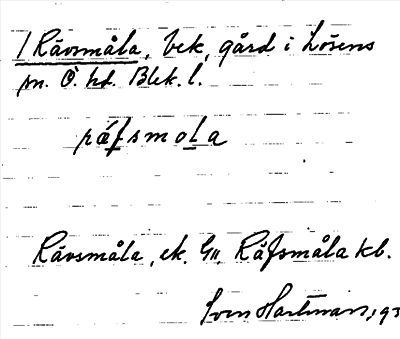 1 Rävsmåla, bek, gård i Lösens
m. Ö. hd. Blek. l.
rǽfsmola
Rävsmåla, ek. Gu. Räfsmåla kb.
Sven Hartman, 193